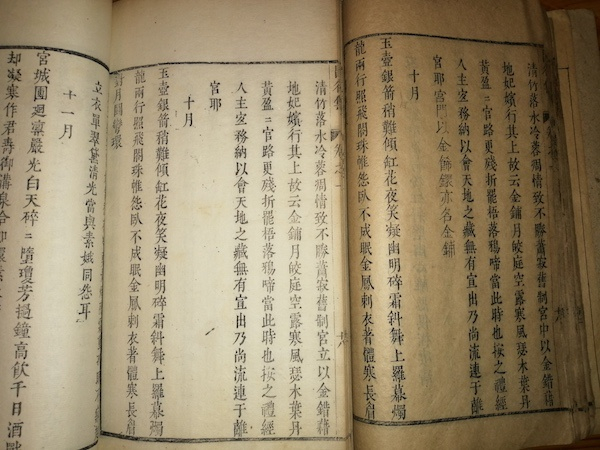 清竹落水冷蓉凋情致不勝蕭寂舊制宮中以金錯藉
地妃嬪行其上故云金鋪月皎庭空露寒風瑟木葉丹
黃盈二官路更殘折罷梧落鴉啼當此時也按之禮經
人主宜務納以會天地之藏無有宣出乃尚流連于離
宮耶宮門以金飾鐶亦名金鋪
十月
玉壺銀箭稍難傾釭花夜笑凝幽明碎霜斜舞上羅幕燭
龍兩行照飛閣珠帷怨臥不成眠金鳳刺衣著體寒長眉
卷之一
清竹落水冷蓉凋情致不勝蕭寂舊制宮中以金錯藉
地妃嬪行其上故云金鋪月皎庭空露寒風瑟木葉丹
黃盈二官路更殘折罷梧落鴉啼當此時也按之禮經
人主宜務納以會天地之藏無有宣出乃尚流連于離
宮耶
十月
玉壺銀箭稍難傾釭花夜笑凝幽明碎霜斜舞上羅幕燭
龍兩行照飛閣珠帷怨臥不成眠金鳳刺衣著體寒長眉
對月鬪彎環
衣單翠光當與素娥同怨耳
十一月
宮城團迴凜嚴光白天碎二墮瓊芳撾鐘高飲千日酒
却凝寒作君壽御溝泉合如環素